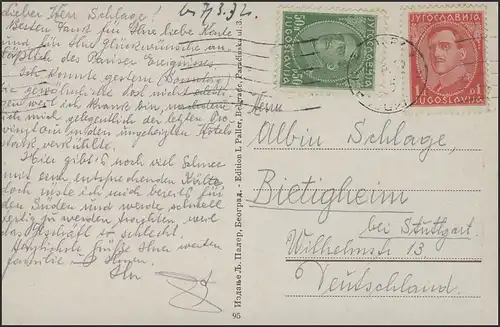 b. 7/3.32.
Lieber Herr Schlage!
Besten Dank für Ihre liebe Karte
und für Ihre Glückwünsche an-
lässlich des Pariser Ereignisses
Ich konnte gestern, Sonntag
die gewöhnliche
weil ich krank bin, nachdem
ich mich gelegentlich der letzten Pro-
vinztour in den ungeheizten Hotels
stark verkühlte.
Hier gibt's noch viel Schnee
und auch entsprechenden Kälte,
doch muss ich mich bereits für
den Süden und werde schnell
fertig zu werden trachten, weil
das Geschäft schlecht.
Herzlichste Grüße Ihnen werten
Familie
Ihr
50п ЈУГОСЛАВИЈА
JUGOSLAVIJA 50p
ЈУГОСЛАВИЈА
1д JUGOSLAVIJA D1
Издање Љ. Палер, Београд. - Edition I. Paller, Belgrade, Paraćinski ul. 3.
95
Herrn
Albin Schlage,
Bietigheim
bei Stuttgart.
Wilhelmstr 13
Deutschland.